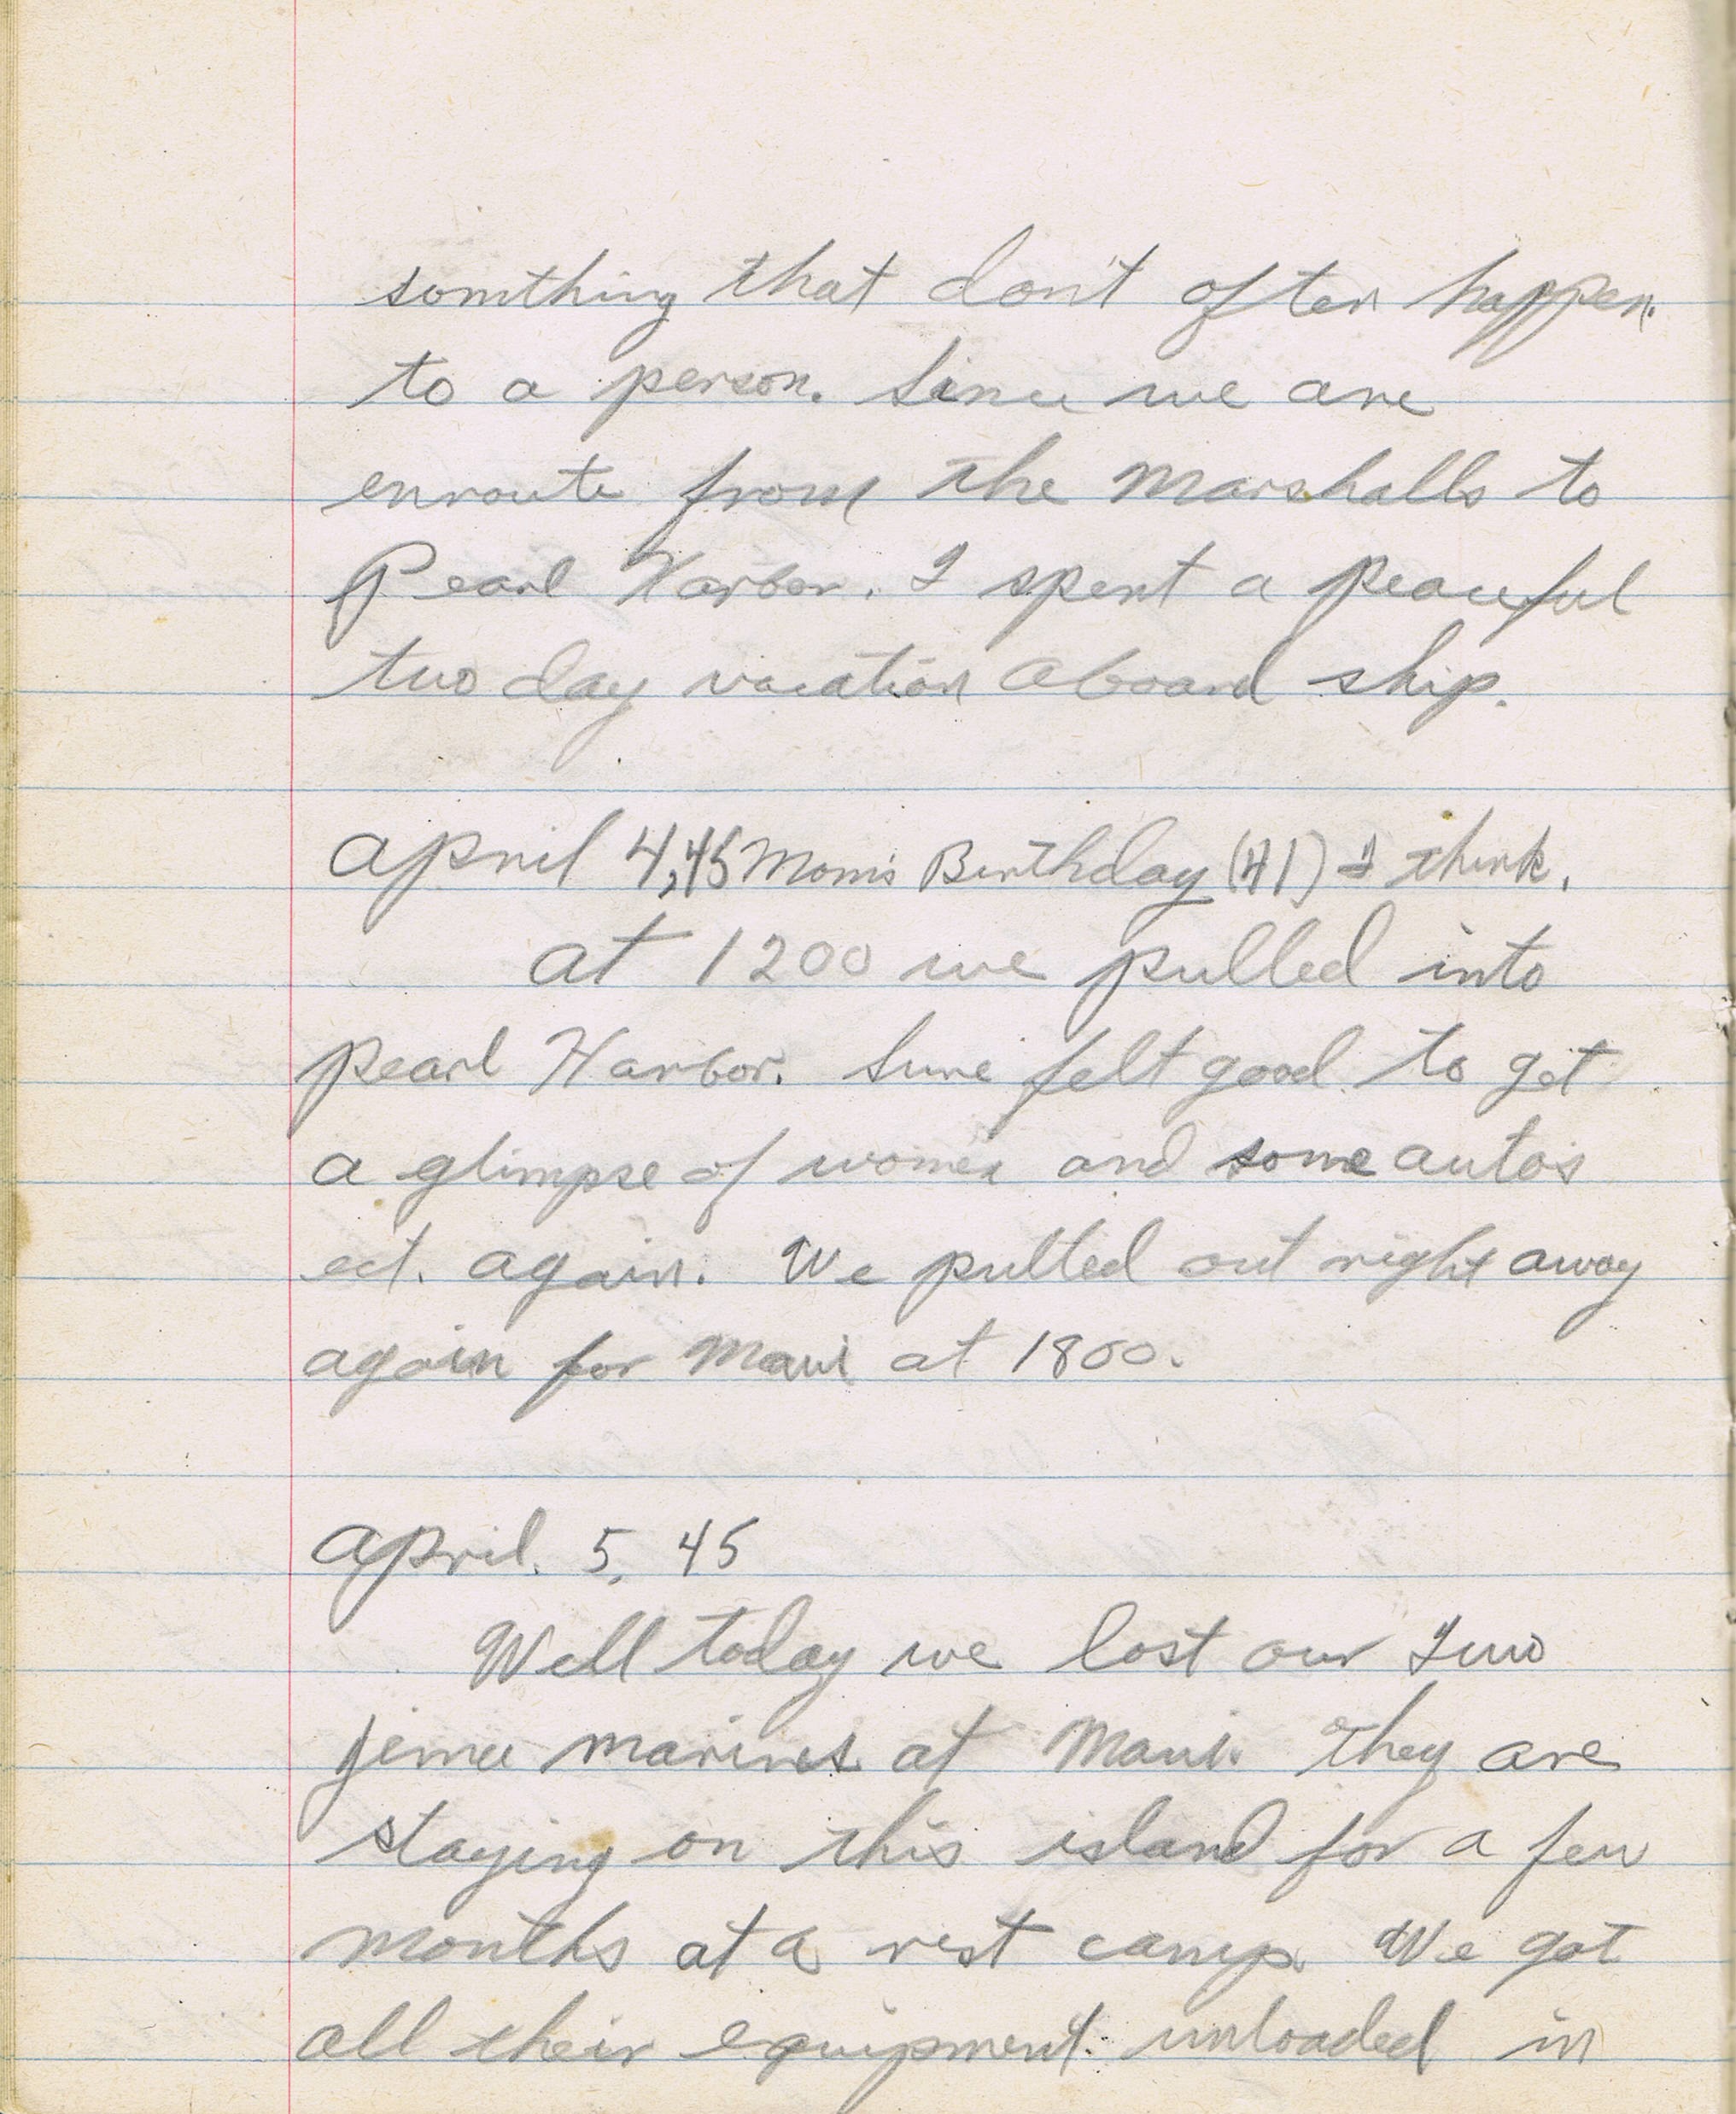 somthing that don't often happen.
to a person. Since we are
enroute from the Marshalls to
Pearl Harbor. I spent a peaceful
two day vacation aboard ship.
April 4, 45 Mom's Birthday (41) I think.
At 1200 we pulled into
Pearl Harbor. Sure felt good to get
a glimpse of women and some autos
ect. again. We pulled out right away
again for Maui at 1800.
April. 5, 45
Well today we lost our Iwo
Jema marines at Maui. They are
staying on this island for a few
months at a rest camp. We got
all their equipment unloaded in